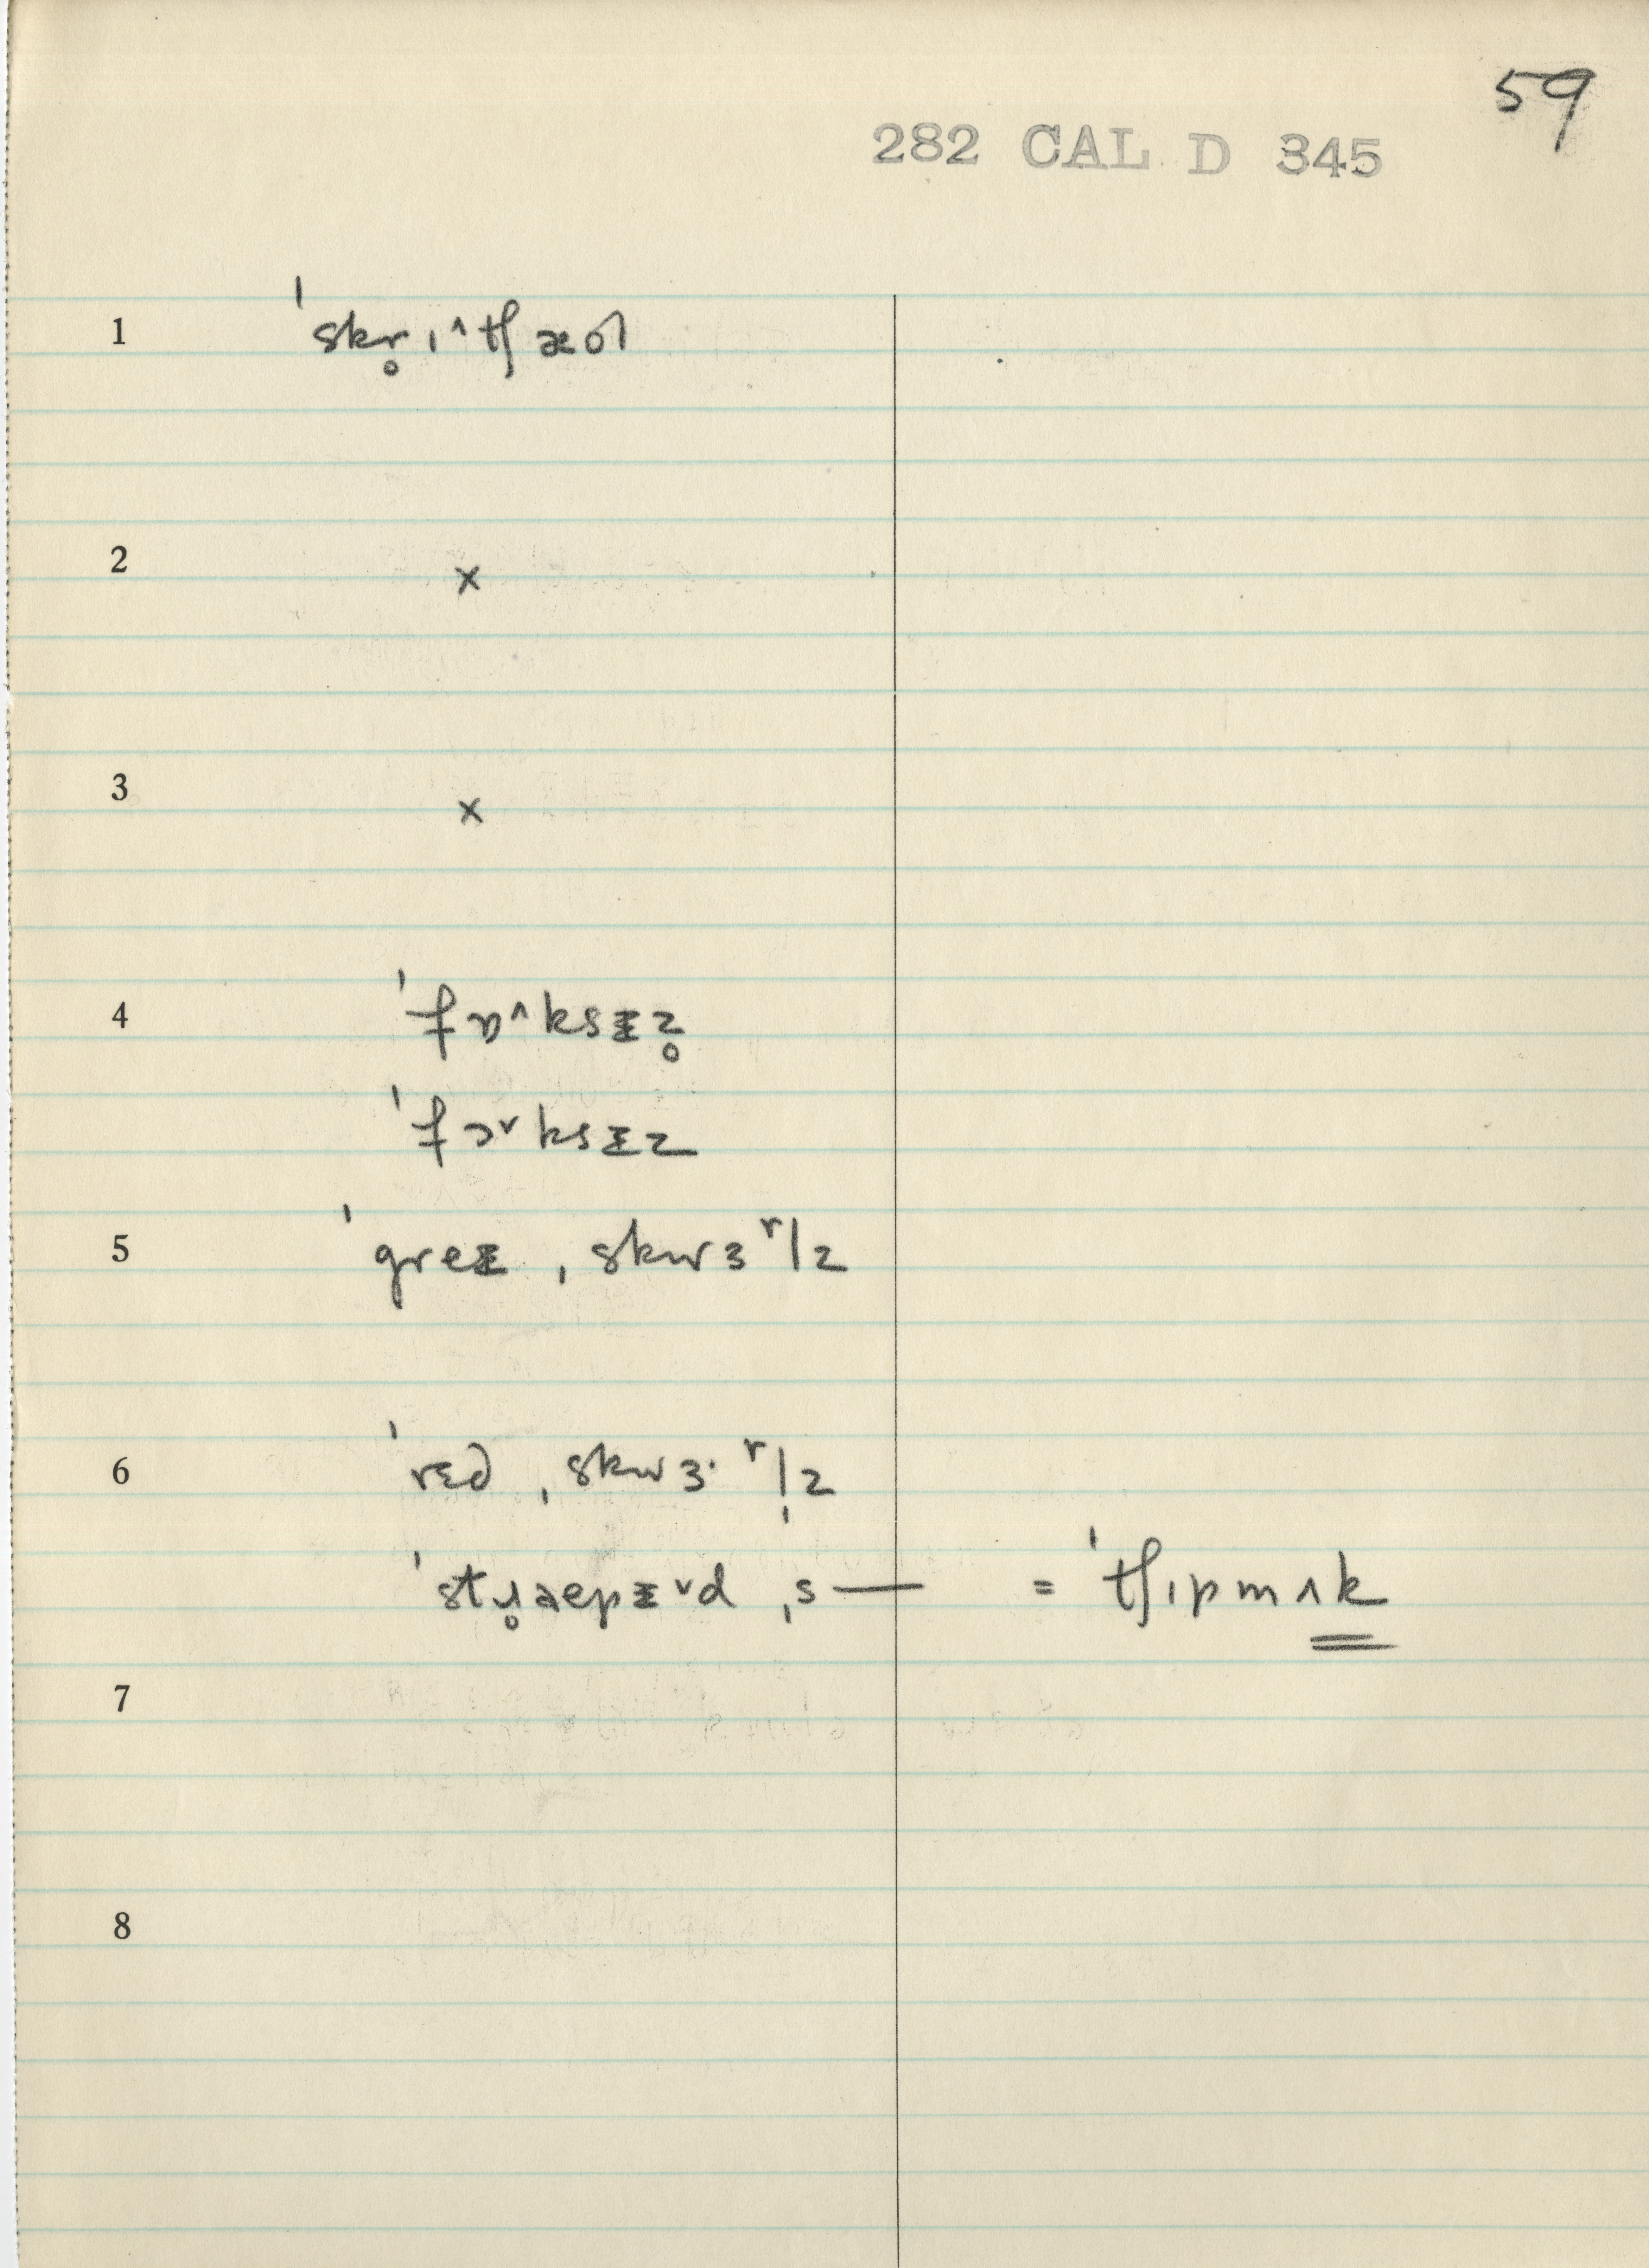 59
282 CAL D 345
1 ˈskr̥ɪ^tʃæol
2 x
3 x
4 ˈfɒ^ksɪz̥
ˈfɔ˅ksɪz
5 ˈgreɪ ˌskwɜʳlz
6 ˈrɛd ˌskwɜ·ʳl̩z
ˈstɹ̥aepɪ˅d ˌs— = ˈtʃɪpmʌk
7
8